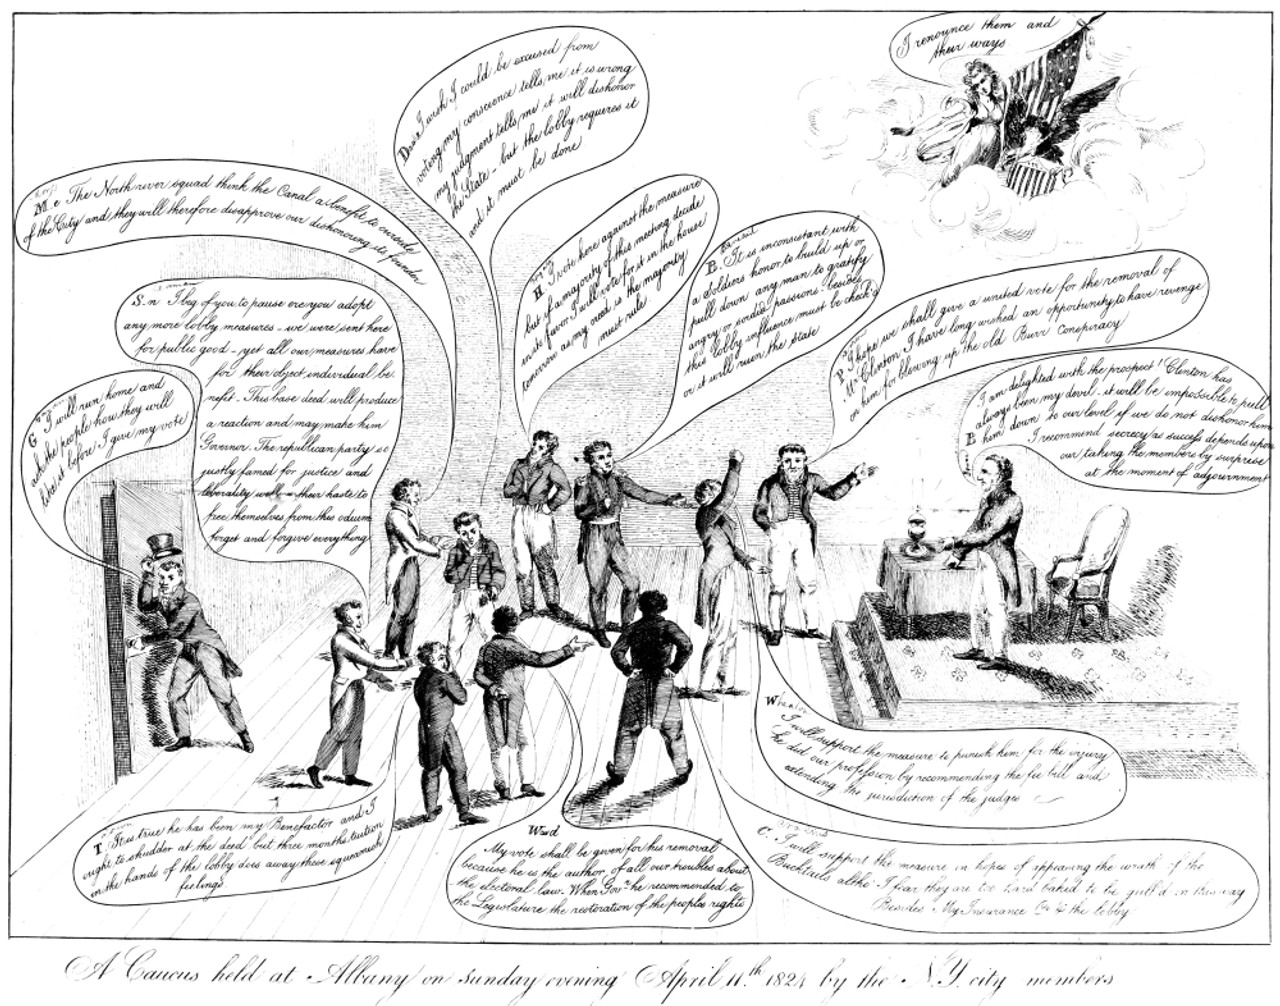 I renounce them and
their ways
Dear I wish I could be excused from
voting my conscience tells me it is wrong
my judgment tells me it will dishonor
the State - but the lobby requires it
and it must be done
M.e The North river squad think the Canal a benefit to outside
of the City and they will therefore disapprove our dishonoring its founder
H. I vote here against the measure
but if a majority of this meeting decide
in its favor I will vote for it in the house
tomorrow as my creed is the majority
must rule
B. It is inconsistant with
a Soldiers honor to build up or
pull down any man to gratify
angry or sordid passions - besides
this lobby influence must be check'd
or it will ruin the State
P. I hope we shall give a united vote for the removal of
Mr. Clinton I have long wished an opportunity to have revenge
on him for blowing up the old Burr Conspiracy
I am delighted with the prospect! Clinton has
always been my devil - it will be impossible to pull
B him down to our level if we do not dishonor him
I recommend secrecy as success depends upon
our taking the members by surprise
at the moment of adjournment
S.n I beg of you to pause ere you adopt
any more lobby measures - we were sent here
for public good - yet all our measures have
for their object individual be-
nefit - This base deed will produce
a reaction and may make him
Governor. The republican party so
justly famed for justice and
liberality will in their haste to
free themselves from this odium
forget and forgive everything
G I will run home and
ask the people how they will
like it before I give my vote
Wheaton
I will support the measure to punish him for the injury
he did our profession by recommending the fee bill and
extending the jurisdiction of the judges
T. It is true he has been my Benefactor and I
ought to shudder at the deed but three months tuition
in the hands of the lobby does away these squeamish
feelings
Wood
My vote shall be given for his removal
because he is the author of all our troubles about
the electoral law - When Govr. he recommended to
the Legislature the restoration of the peoples rights
C. I will support the measure in hopes of appeasing the wrath of the
Bucktails altho' I fear they are too hard baked to be gull'd in this way
Besides My Insurance Co. & the lobby
A Caucus held at Albany on Sunday evening April 11th. 1824 by the N.Y. city members